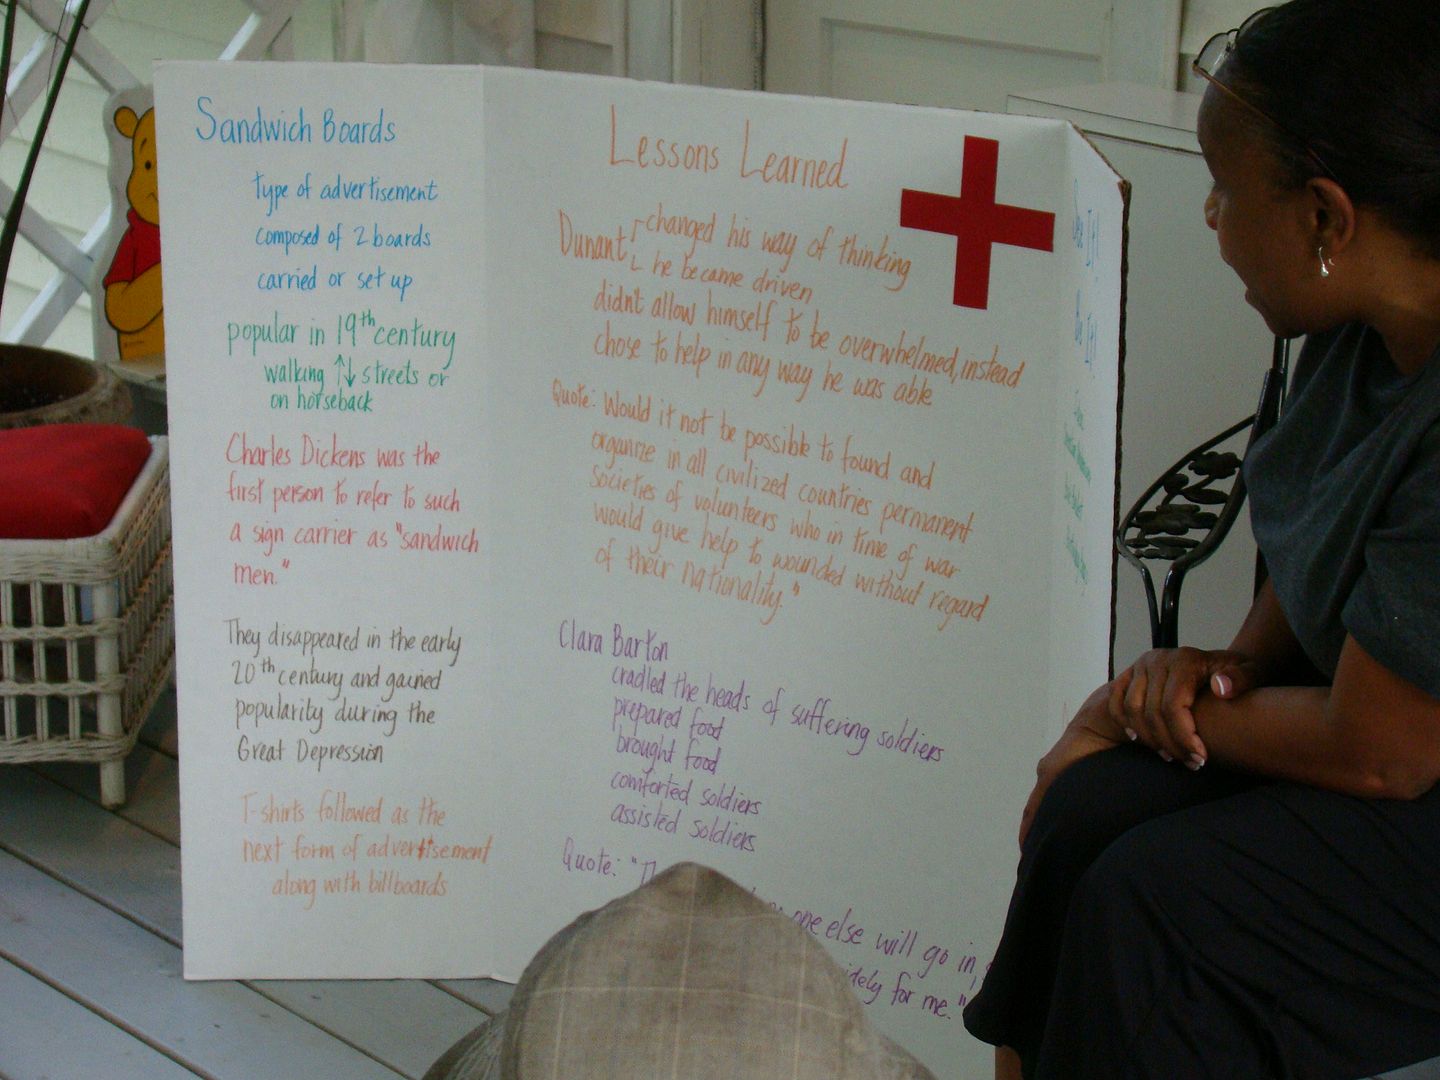 Sandwich Boards
type of advertisement
composed of 2 boards
carried or set up
popular in 19th century
walking ↑↓ streets or
on horseback
Charles Dickens was the
first person to refer to such
a sign carrier as "sandwich
men."
They disappeared in the early
20th century and gained
popularity during the
Great Depression
T-shirts followed as the
next form of advertisement
along with billboards
Lessons Learned
Dunant changed his way of thinking
he became driven
didn't allow himself to be overwhelmed, instead
chose to help in any way he was able
Quote: Would it not be possible to found and
organize in all civilized countries permanent
societies of volunteers who in time of war
would give help to wounded without regard
of their nationality."
Clara Barton
cradled the heads of suffering soldiers
prepared food
brought food
comforted soldiers
assisted soldiers
Quote: "
one else will go in,
for me."
It!
It!